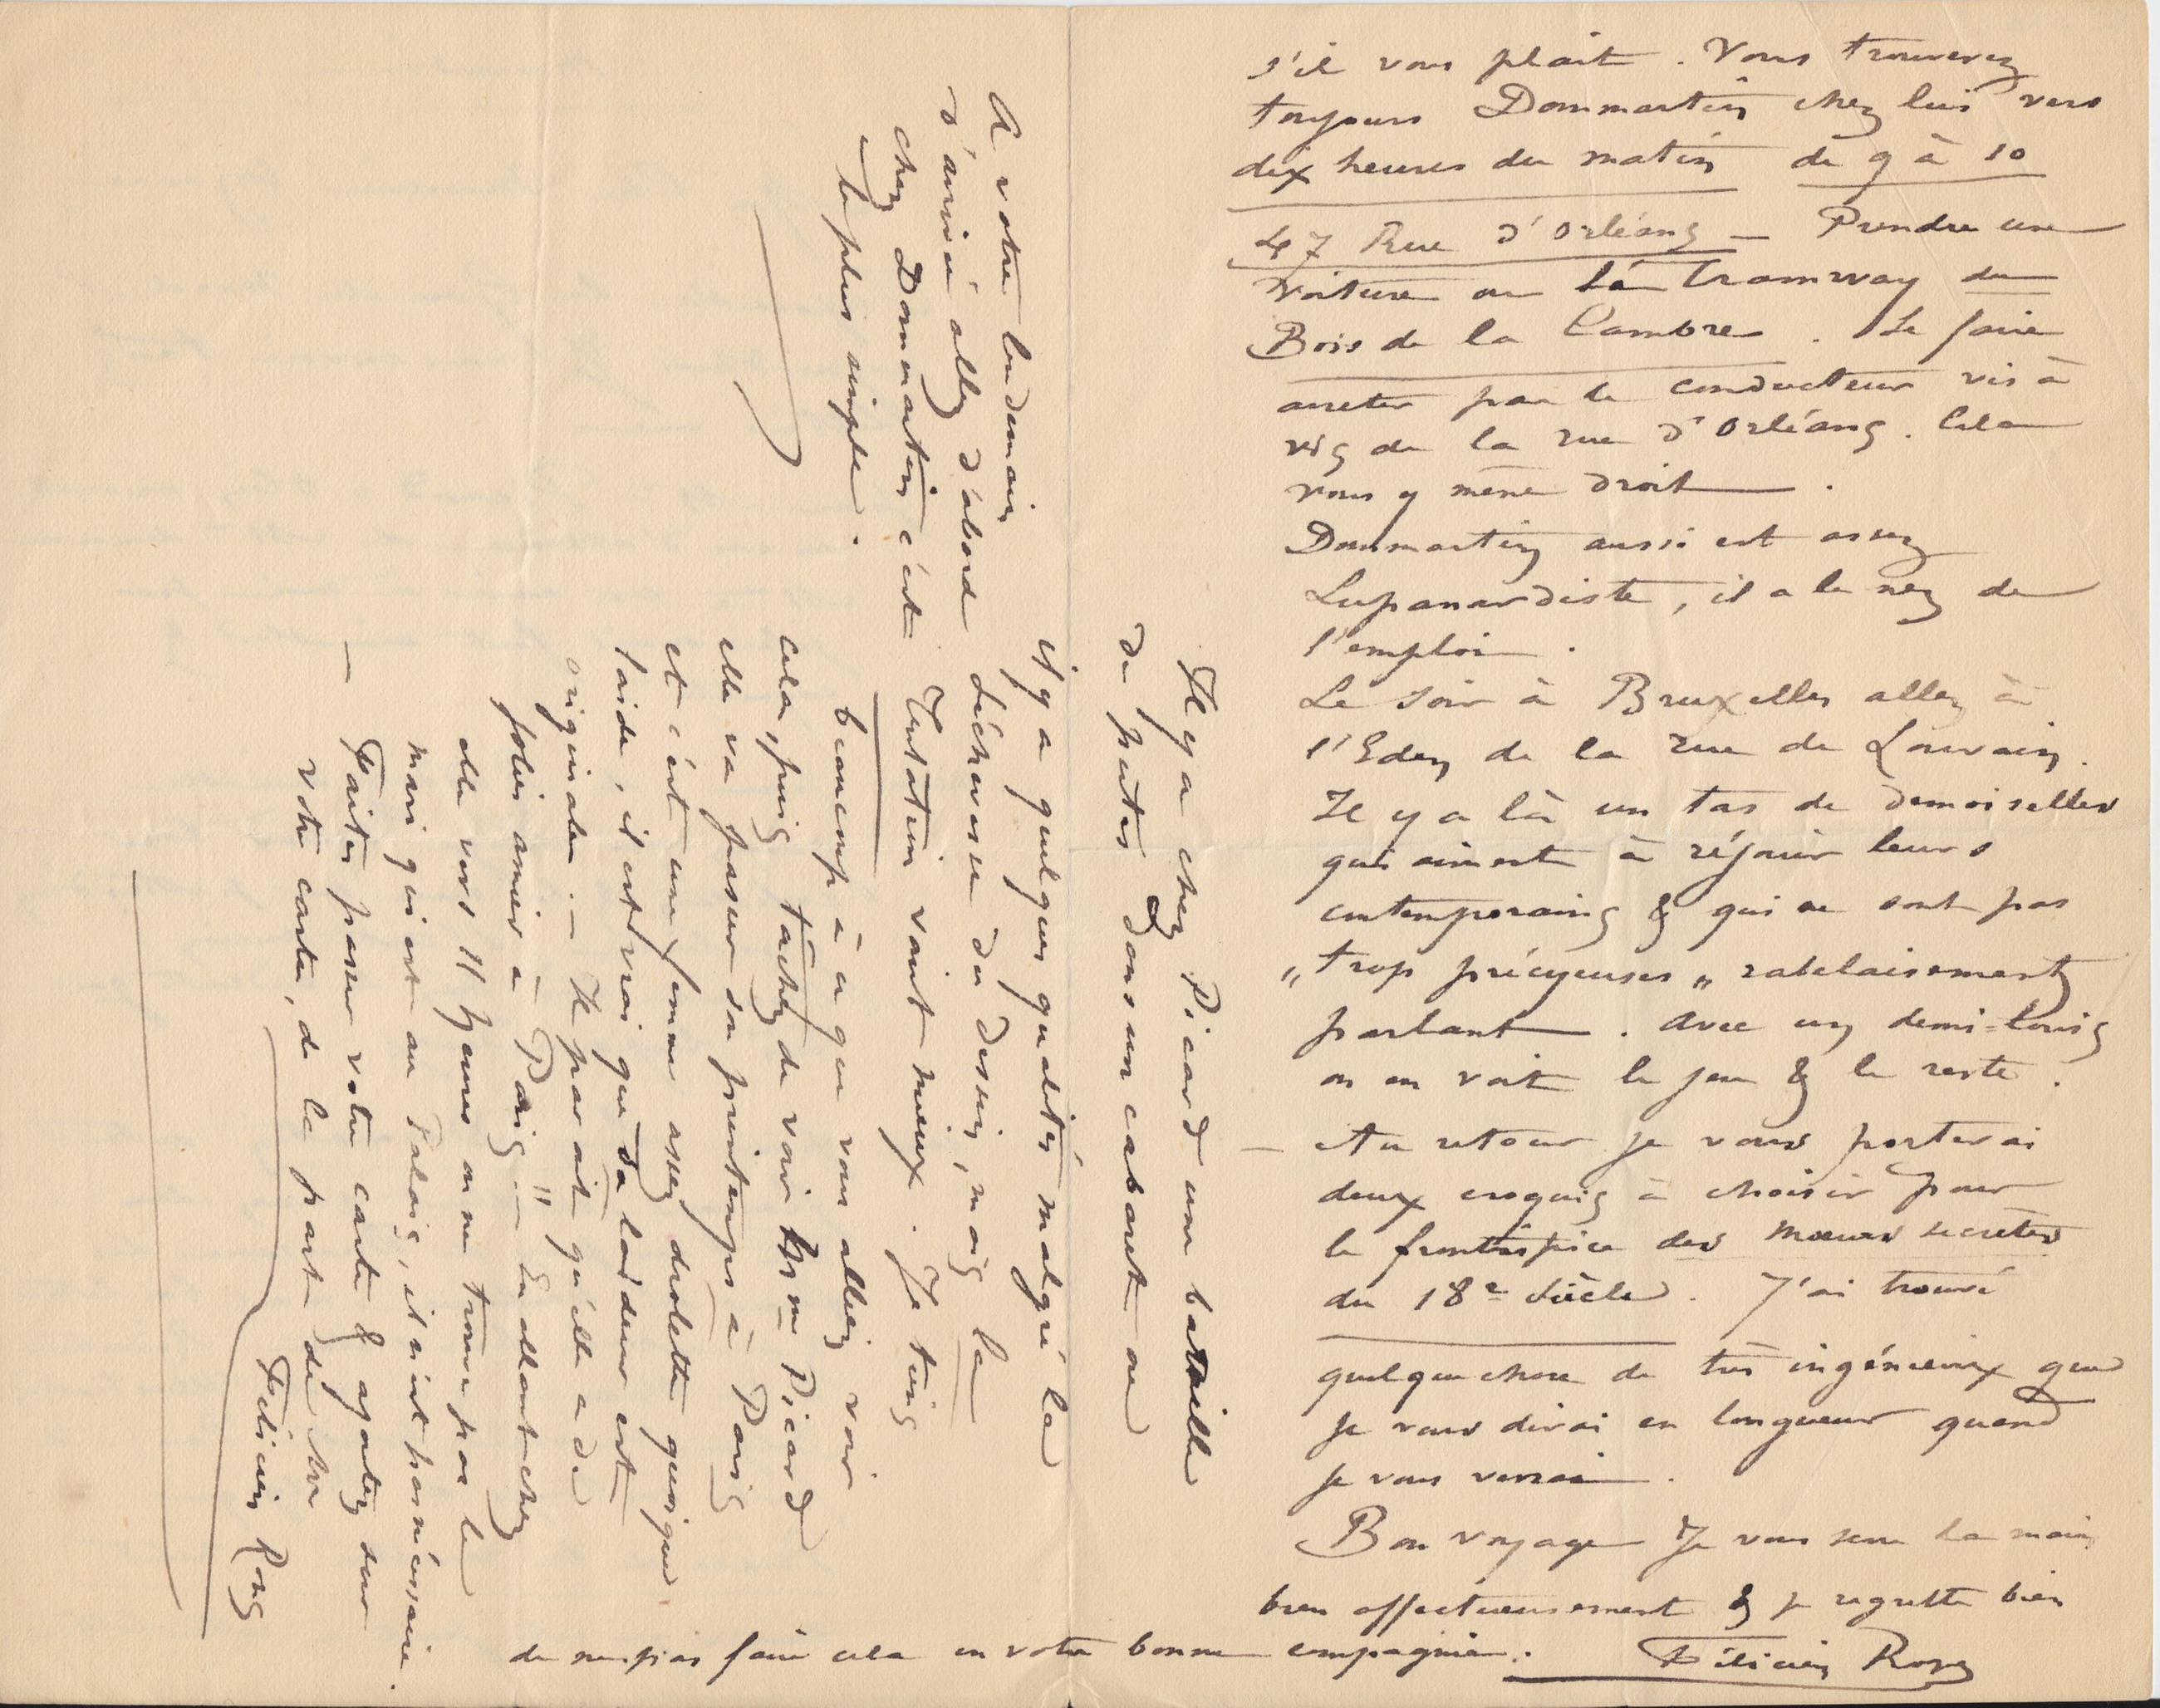 s'il vous plait. Vous trouverez
toujours Dommartin chez lui vers
dix heures du matin de 9 à 10
47 Rue d'Orléans — Prendre une
voiture ou le Tramway du
Bois de la Cambre. Se faire
arreter par le conducteur vis à
vis de la rue d'Orléans. Cela
vous y mène droit.
Dommartin aussi est assez
Lupanardiste, il a le nez de
l'emploi.
Le soir à Bruxelles allez à
l'Eden de la rue de Louvain.
Il y a là un tas de demoiselles
qui aiment à réjouir leurs
contemporains & qui ne sont pas
„trop précyeuses„ rabelaisement
parlant. Avec un demi-louis
on en voit le jeu & le reste.
— Au retour je vous porterai
deux croquis à choisir pour
le frontispice des Mœurs secrètes
du 18e Siècle. J'ai trouvé
quelque chose de très ingénieux que
je vous dirai en longueur quand
je vous verrai.
Bon voyage Je vous serre la main
bien affectueusement & je regrette bien
de ne pas faire cela en votre bonne compagnie. Félicien Rops
Il y a chez Picard une bataille
de putes dans un cabaret ou
il y a quelques qualités malgré la
sécheresse du dessin, mais la
Tentation vaut mieux. Je tiens
beaucoup à ce que vous alliez voir
cela, puis tâchez de voir Mme Picard
elle va passer son printemps à Paris
et c'est une femme assez drolette quoique
laide, il est vrai que sa laideur est
originale. — Il parait qu'elle a de
jolies amies à Paris!! — En allant chez
elle vers 11 heures on ne trouve pas le
mari qui est au Palais, il n'est pas nécessaire.
— Faites passer votre carte & ajoutez sur
votre carte, de la part de Mr
Félicien Rops
A votre lendemain
d'arrivée allez d'abord
chez Dommartin c'est
le plus simple.